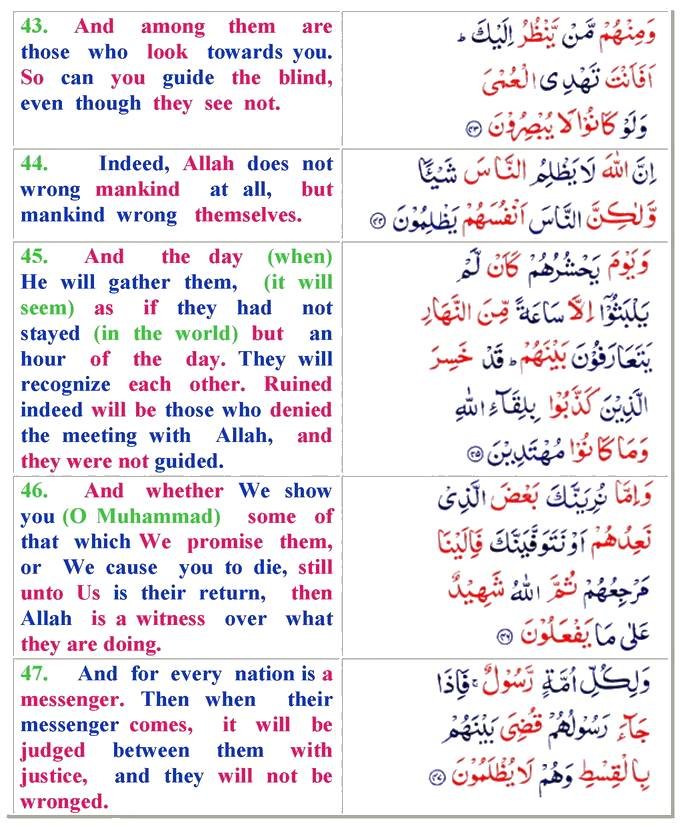 43. And among them are
those who look towards you.
So can you guide the blind,
even though they see not.
وَمِنْهُمْ مَّنْ يَّنْظُرُ اِلَيْكَ ؕ
اَفَاَنْتَ تَهْدِى الْعُمْىَ
وَلَوْ كَانُوْا لَا يُبْصِرُوْنَ ﴿۴۳﴾
44. Indeed, Allah does not
wrong mankind at all, but
mankind wrong themselves.
اِنَّ اللّٰهَ لَا يَظْلِمُ النَّاسَ شَيْئًا
وَّلٰكِنَّ النَّاسَ اَنْفُسَهُمْ يَظْلِمُوْنَ ﴿۴۴﴾
45. And the day (when)
He will gather them, (it will
seem) as if they had not
stayed (in the world) but an
hour of the day. They will
recognize each other. Ruined
indeed will be those who denied
the meeting with Allah, and
they were not guided.
وَيَوْمَ يَحْشُرُهُمْ كَاَنْ لَّمْ
يَلْبَثُوْۤا اِلَّا سَاعَةً مِّنَ النَّهَارِ
يَتَعَارَفُوْنَ بَيْنَهُمْ ؕ قَدْ خَسِرَ
الَّذِيْنَ كَذَّبُوْا بِلِقَآءِ اللّٰهِ
وَمَا كَانُوْا مُهْتَدِيْنَ ﴿۴۵﴾
46. And whether We show
you (O Muhammad) some of
that which We promise them,
or We cause you to die, still
unto Us is their return, then
Allah is a witness over what
they are doing.
وَاِمَّا نُرِيَنَّكَ بَعْضَ الَّذِىْ
نَعِدُهُمْ اَوْ نَتَوَفَّيَنَّكَ فَاِلَيْنَا
مَرْجِعُهُمْ ثُمَّ اللّٰهُ شَهِيْدٌ
عَلٰى مَا يَفْعَلُوْنَ ﴿۴۶﴾
47. And for every nation is a
messenger. Then when their
messenger comes, it will be
judged between them with
justice, and they will not be
wronged.
وَلِكُلِّ اُمَّةٍ رَّسُوْلٌ ۚ فَاِذَا
جَآءَ رَسُوْلُهُمْ قُضِىَ بَيْنَهُمْ
بِالْقِسْطِ وَهُمْ لَا يُظْلَمُوْنَ ﴿۴۷﴾